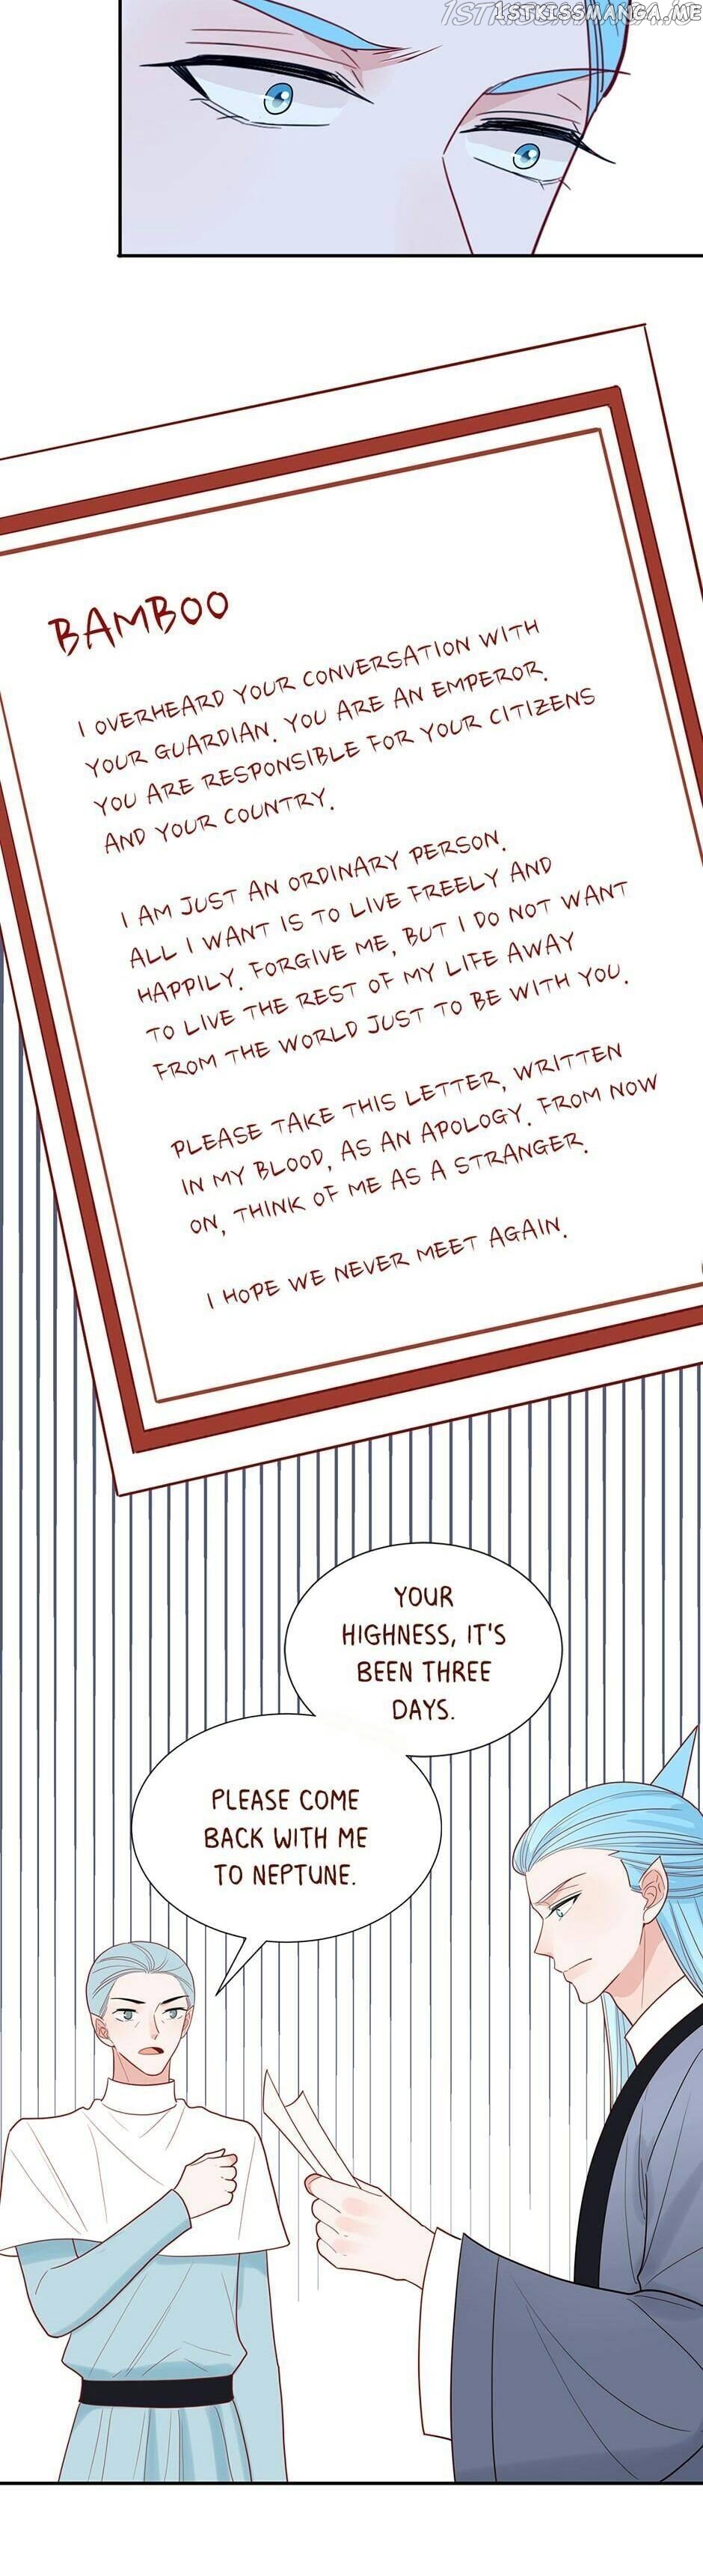 1STKISSMANGA.ME
BAMBOO
I OVERHEARD YOUR CONVERSATION WITH
YOUR GUARDIAN. YOU ARE AN EMPEROR.
YOU ARE RESPONSIBLE FOR YOUR CITIZENS
AND YOUR COUNTRY.
I AM JUST AN ORDINARY PERSON.
ALL I WANT IS TO LIVE FREELY AND
HAPPILY. FORGIVE ME, BUT I DO NOT WANT
TO LIVE THE REST OF MY LIFE AWAY
FROM THE WORLD JUST TO BE WITH YOU.
PLEASE TAKE THIS LETTER, WRITTEN
IN MY BLOOD, AS AN APOLOGY. FROM NOW
ON, THINK OF ME AS A STRANGER.
I HOPE WE NEVER MEET AGAIN.
YOUR
HIGHNESS, IT'S
BEEN THREE
DAYS.
PLEASE COME
BACK WITH ME
TO NEPTUNE.